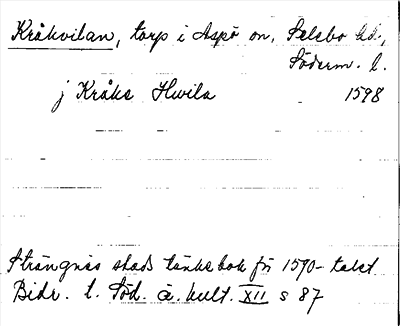 Kråkvilan, torp i Aspö sn, Selebo hd.,
Söderm. l.
j Kråke Hwila 1598
Strängnäs stads tänkebok för 1590-talet
Bidr. t. Söd. ä. kult. XII s 87